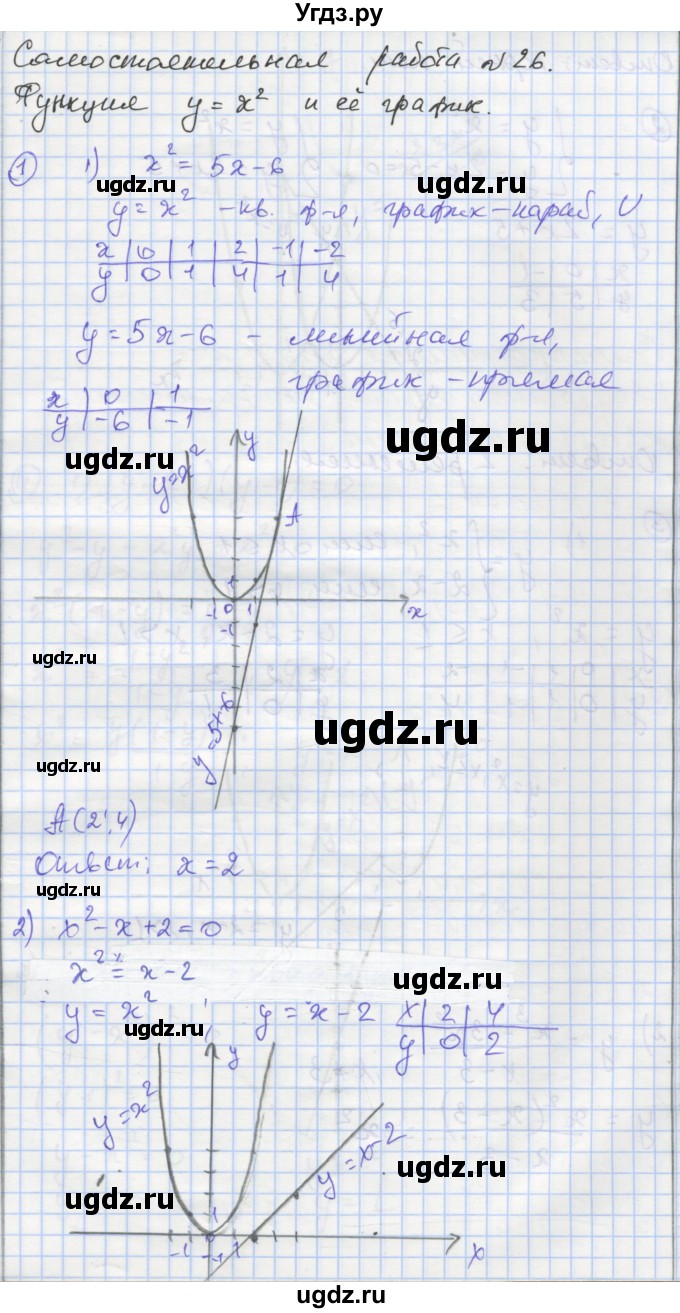 Угдз.ру
Самостоятельная работа №26.
Функция y = x² и её график.
① 1) x² = 5x - 6
ugdz.ru
y = x² - кв. ф-я, график - параб, ∪
x | 0 | 1 | 2 | -1 | -2
y | 0 | 1 | 4 | 1 | 4
y = 5x - 6 - линейная ф-я,
график - прямая
x | 0 | 1
y | -6 | -1
ugdz.ru
ugdz.ru
y = x²
y
A
ugdz.ru
1
-1 0 1 x
-1
ugdz.ru
ugdz.ru
y = 5x-6
ugdz.ru
ugdz.ru
A(2; 4)
Ответ: x = 2
ugdz.ru
ugdz.ru
2) x² - x + 2 = 0
x² = x - 2
ugdz.ru
y = x² ; y = x - 2
x | 2 | 4
y | 0 | 2
ugdz.ru
y
y = x²
ugdz.ru
y = x-2
ugdz.ru
ugdz.ru
1
-1 0 1 x
-1
ugdz.ru